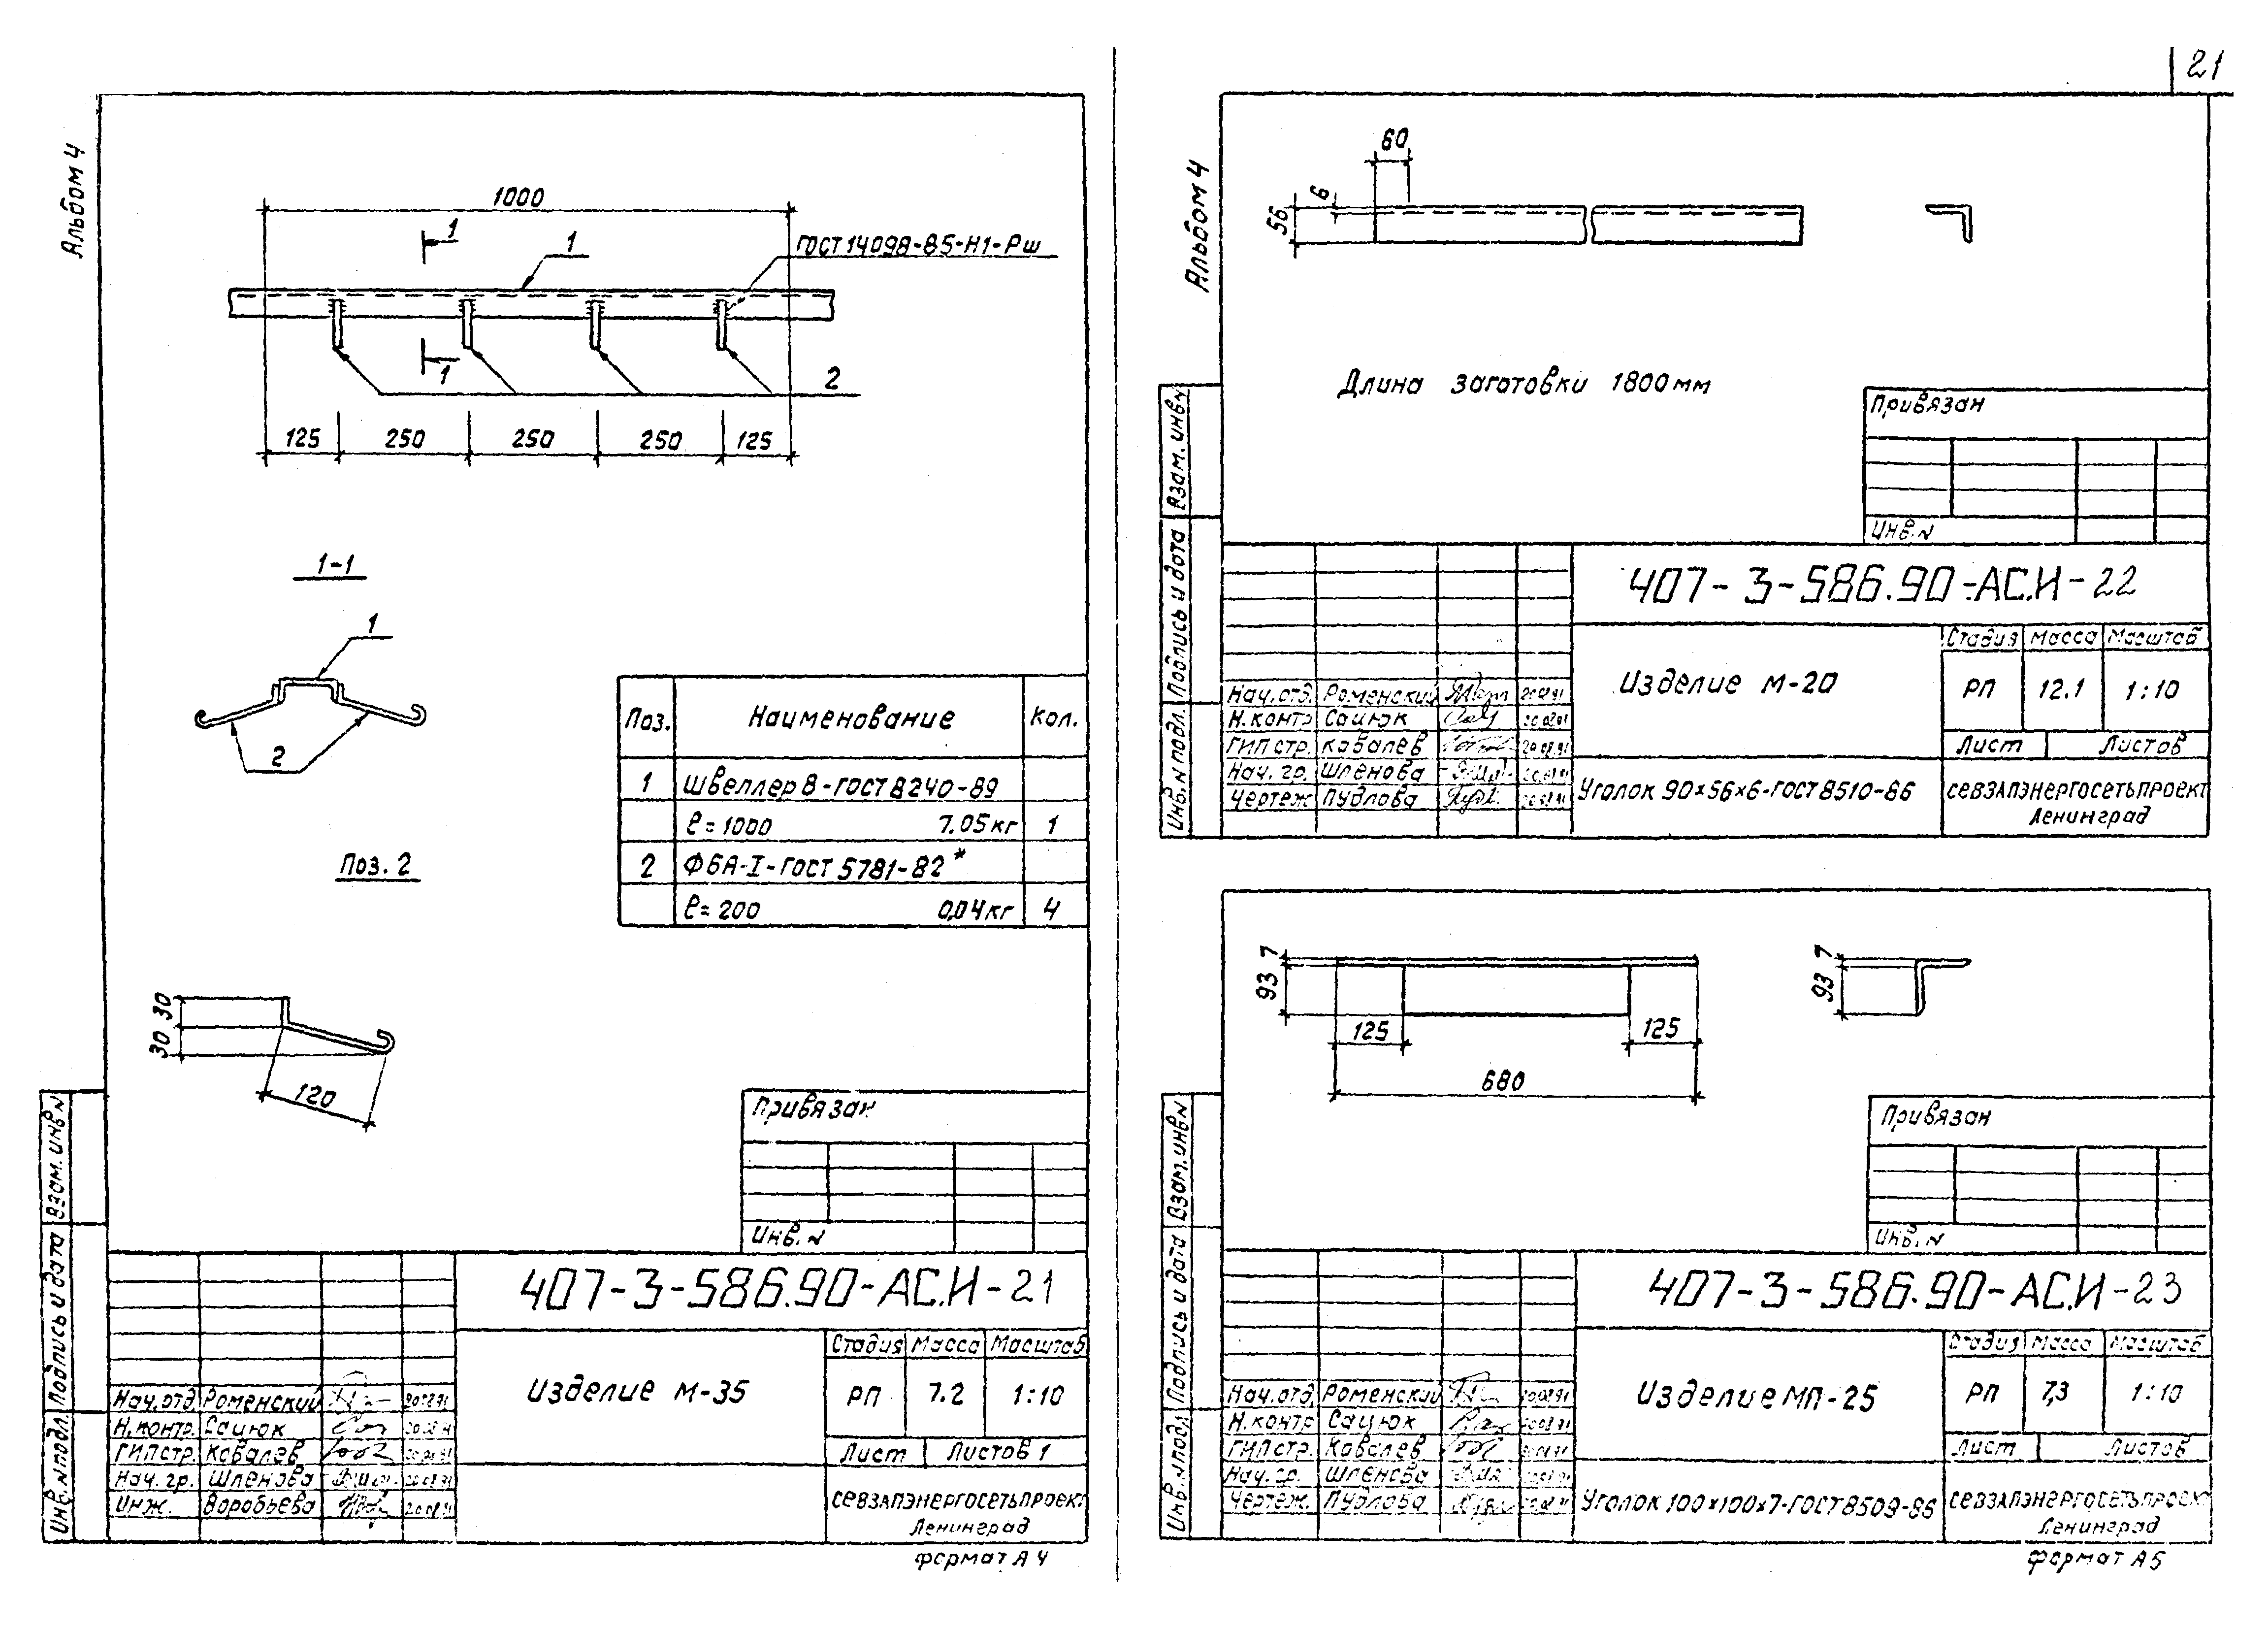 21
Альбом 4
1000
1
1
ГОСТ 14098-85-Н1-Рш
1
2
125 250 250 250 125
1-1
1
2
Поз. Наименование Кол.
1 Швеллер 8-ГОСТ 8240-89
ℓ=1000 7.05 кг 1
2 Ф6А-I-ГОСТ 5781-82*
ℓ=200 0,04 кг 4
Поз. 2
30
30
120
Привязан
Инв. N
Взам. инв N
Подпись и дата
Инв. N подл.
407-3-586.90-АС.И-21
Изделие М-35
Стадия Масса Масштаб
РП 7.2 1:10
Лист Листов 1
Нач. отд. Роменский
Н. контр. Сацюк
ГИП стр. Ковалев
Нач. гр. Шленова
Инж. Воробьева
СЕВЗАПЭНЕРГОСЕТЬПРОЕКТ
Ленинград
формат А4
Альбом 4
60
6
56
Длина заготовки 1800мм
Привязан
Инв. N
Взам. инв N
Подпись и дата
Инв. N подл.
407-3-586.90-АС.И-22
Изделие М-20
Стадия Масса Масштаб
РП 12.1 1:10
Лист Листов
Нач. отд. Роменский
Н. контр Сацюк
ГИП стр. Ковалев
Нач. гр. Шленова
Чертеж Пудлова
Уголок 90×56×6-ГОСТ 8510-86
СЕВЗАПЭНЕРГОСЕТЬПРОЕКТ
Ленинград
7
93
125 125
680
7
93
Привязан
Инв. N
Взам. инв N
Подпись и дата
Инв. N подл
407-3-586.90-АС.И-23
Изделие МП-25
Стадия Масса Масштаб
РП 7,3 1:10
Лист Листов
Нач. отд. Роменский
Н. контр Сацюк
ГИП стр. Ковалев
Нач. гр. Шленова
Чертеж. Пудлова
Уголок 100×100×7-ГОСТ 8509-86
СЕВЗАПЭНЕРГОСЕТЬПРОЕКТ
Ленинград
формат А5